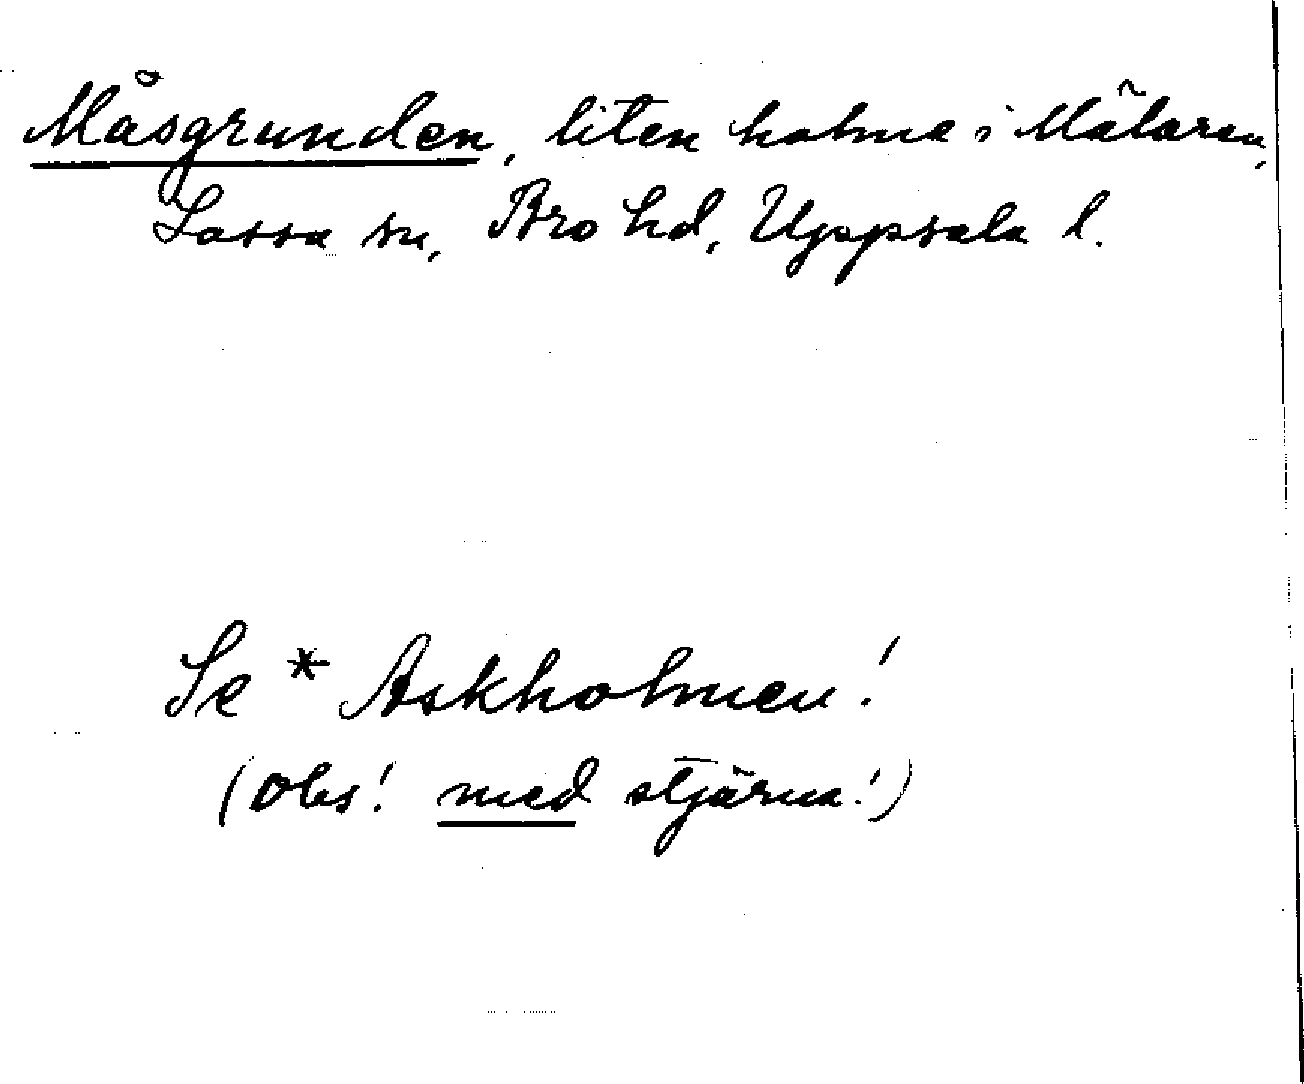 Måsgrunden, liten holme i Mälaren,
Lossa sn, Bro hd, Uppsala l.
Se * Askholmen!
(Obs! med stjärna!)